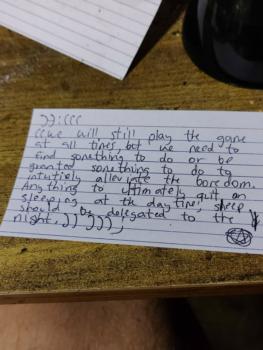 )):(((
((we will still play the game
at all times, but we need to
find something to do or be
granted something to do to
intuitively alleviate the boredom.
Anything to ultimately quit on
sleeping at the day time, sleep
should be delegated to the
night.)) )))))